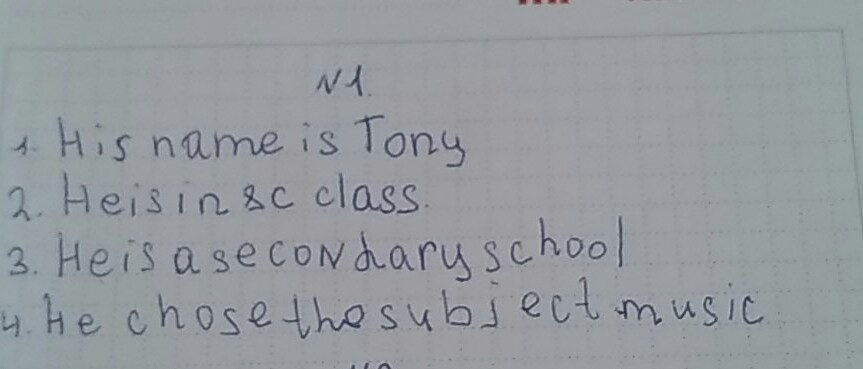 N1.
1. His name is Tony
2. He is in 8c class.
3. He is a secondary school
4. He chose the subject music